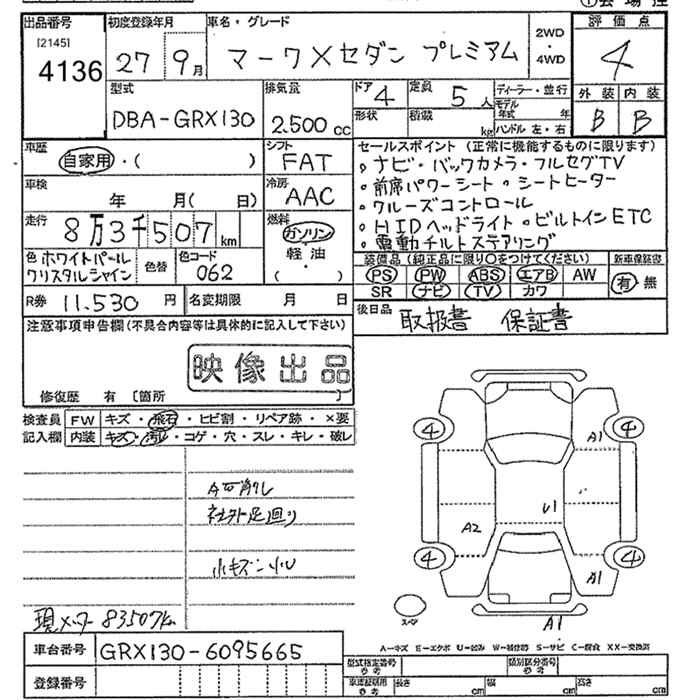 出品番号 初度登録年月 車名・グレード 2WD・4WD 評価点
[2145]
4136 27 9月 マークXセダン プレミアム 4
型式 排気量 ドア 4 定員 5人 ディーラー・並行 外装 内装
DBA-GRX130 2.500cc 形状 積載 kg モデル年式 年 B B
ハンドル 左・右
車歴 シフト セールスポイント (正常に機能するものに限ります)
自家用・( ) FAT 。ナビ・バックカメラ・フルセグTV
車検 冷房 。前席パワーシート 。シートヒーター
年 月( 日) AAC 。クルーズコントロール
走行 燃料 。HIDヘッドライト。ビルトインETC
8万3千507km ガソリン 。電動チルトステアリング
色 ホワイトパール 色替 色コード 軽・油 装備品 (純正品に限り○をつけてください) 新車保証書
クリスタルシャイン 062 ・( ) PS PW ABS エアB AW 有 無
SR ナビ TV カワ
R券 11.530円 名変期限 月 日 後日品 取扱書 保証書
注意事項申告欄(不具合内容等は具体的に記入して下さい)
映像出品
修復歴 有 〔箇所 〕
検査員 FW キズ・飛石・ヒビ割・リペア跡・×要
記入欄 内装 キズ・汚レ・コゲ・穴・スレ・キレ・破レ
4 4
A1
社外足廻り
U1
A2
小キズ・小U
4 4
A1
現メーター 83507km
A1
A-キズ E-エクボ U-凹み W-補修跡 S-サビ C-腐食 XX-交換済
車台番号 GRX130-6095665
型式指定番号 類別区分番号
登録番号 参考 長さ cm 幅 cm 高さ cm